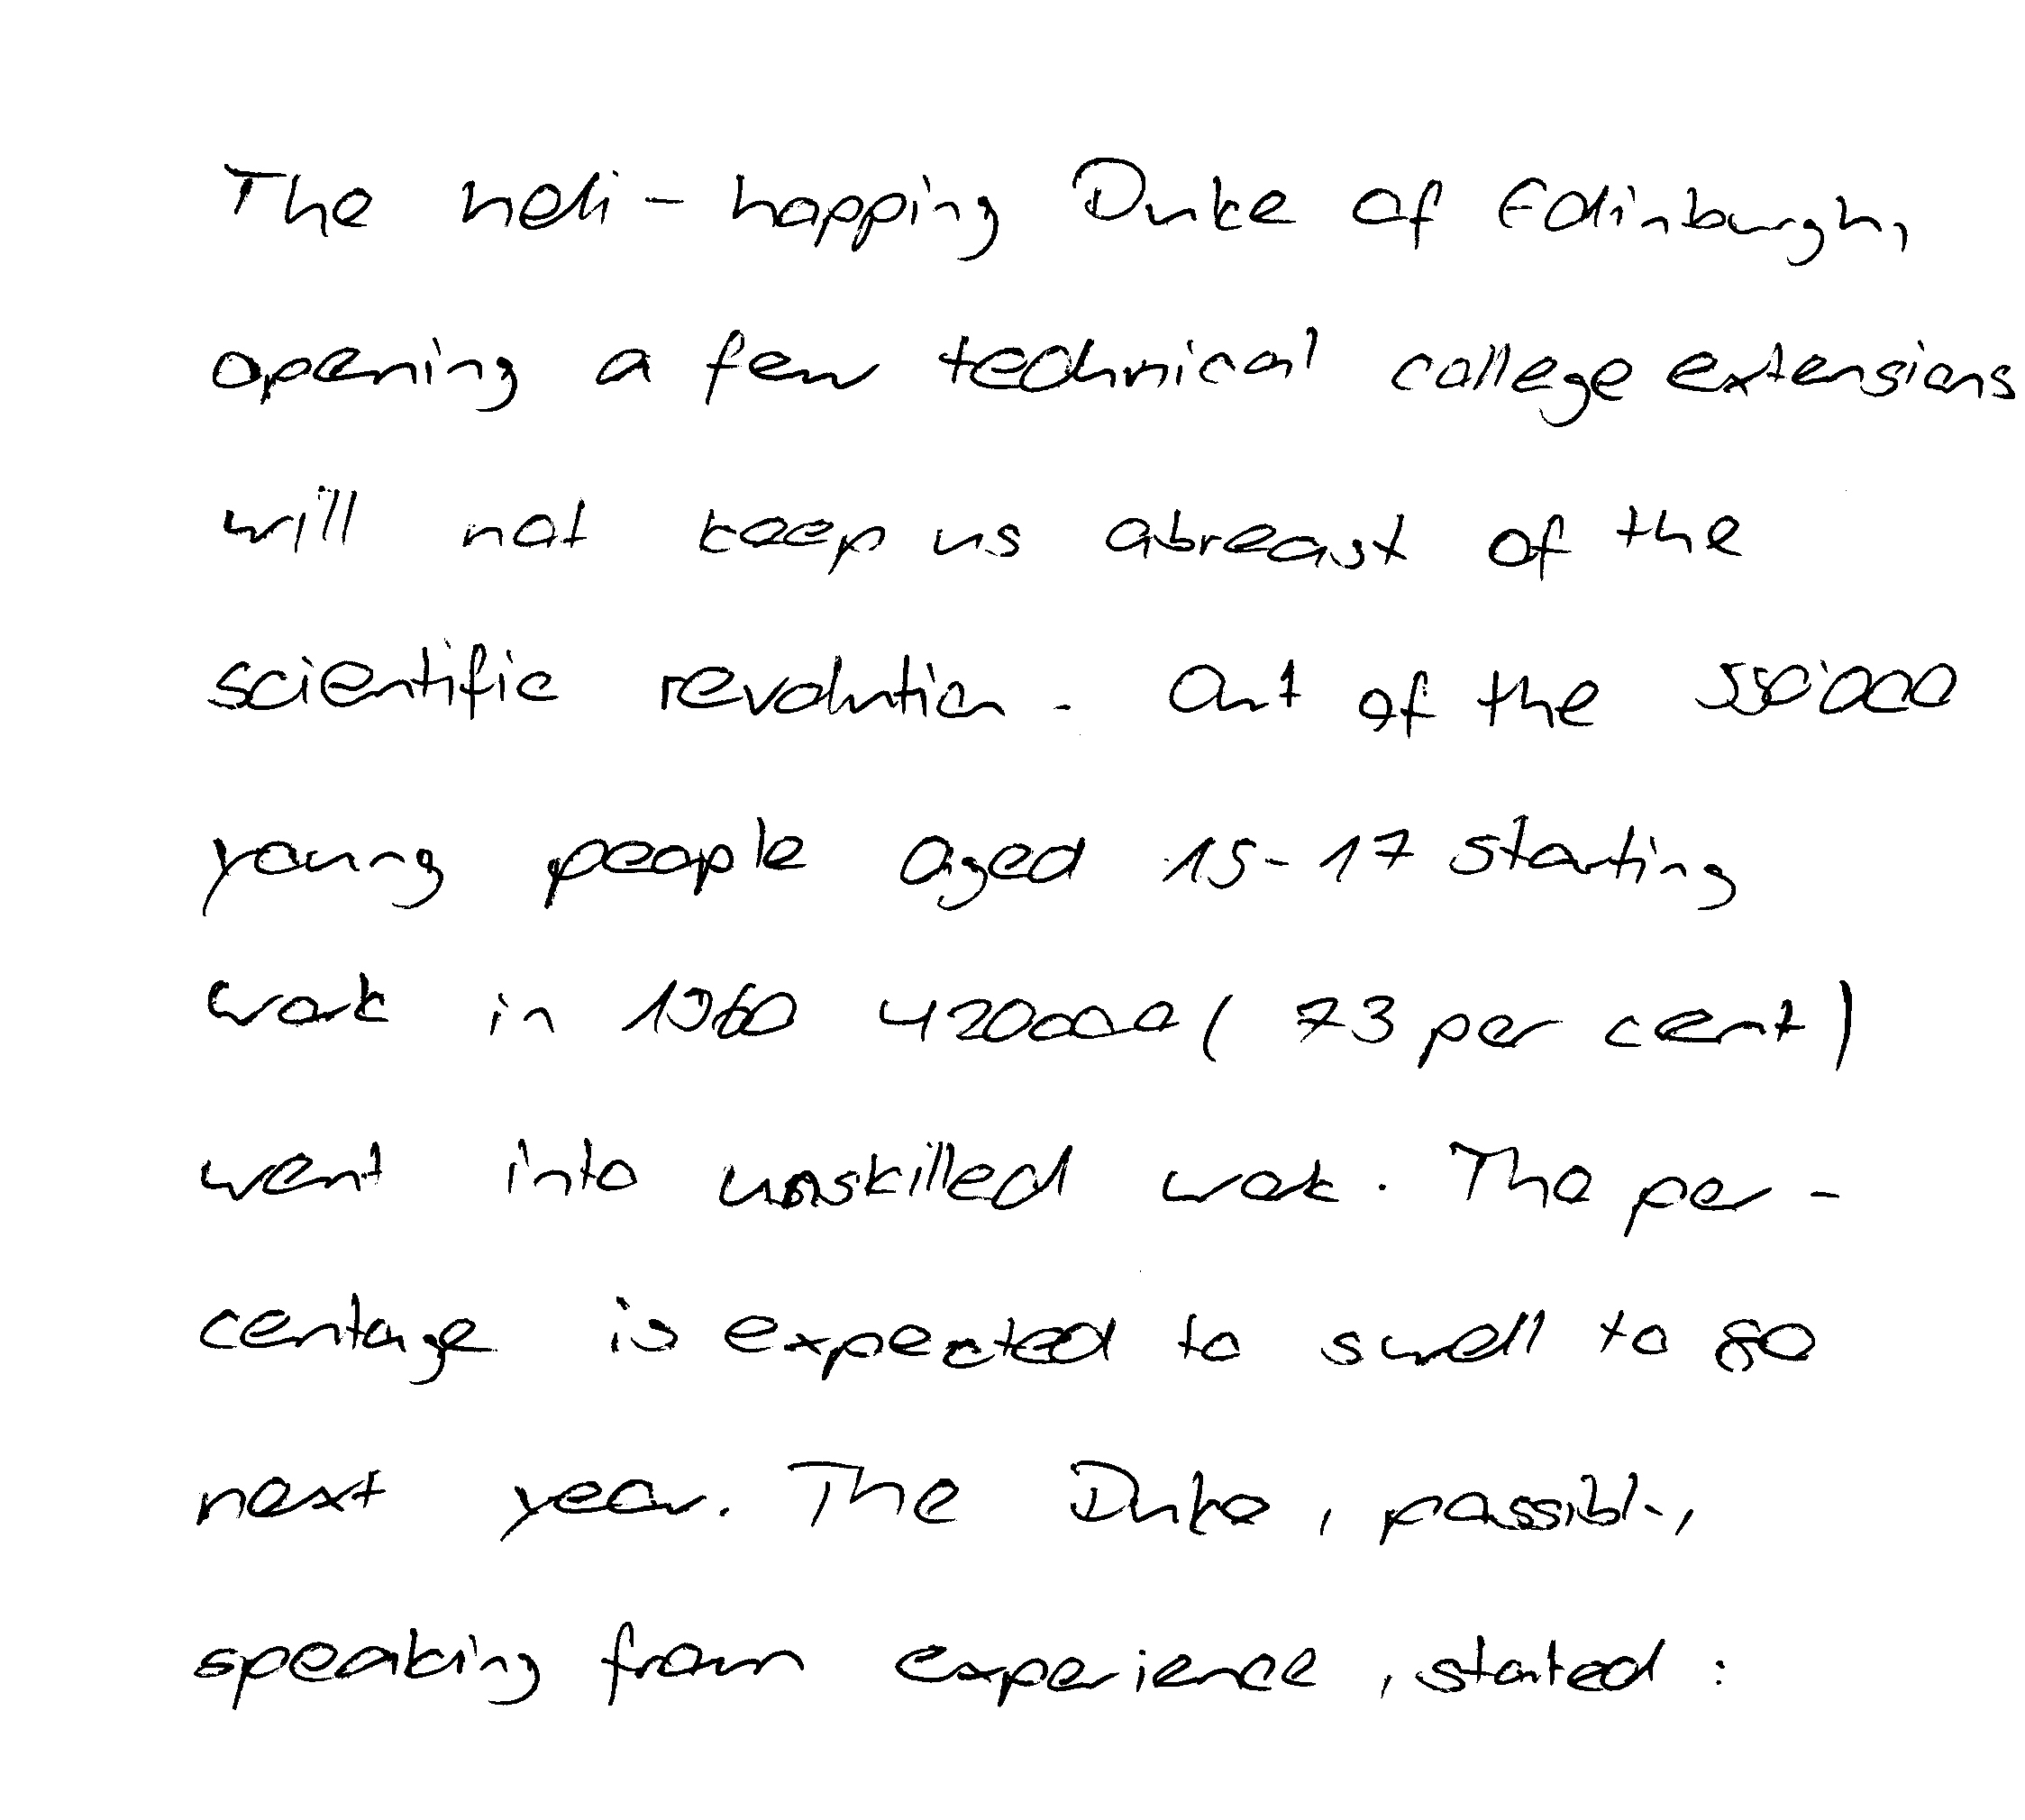 The heli-hopping Duke of Edinburgh,
opening a few technical college extensions
will not keep us abreast of the
scientific revolution. Out of the 550'000
young people aged 15-17 starting
work in 1960 420000 (73 per cent)
went into unskilled work. The per-
centage is expected to swell to 80
next year. The Duke, possibly,
speaking from experience, stated: